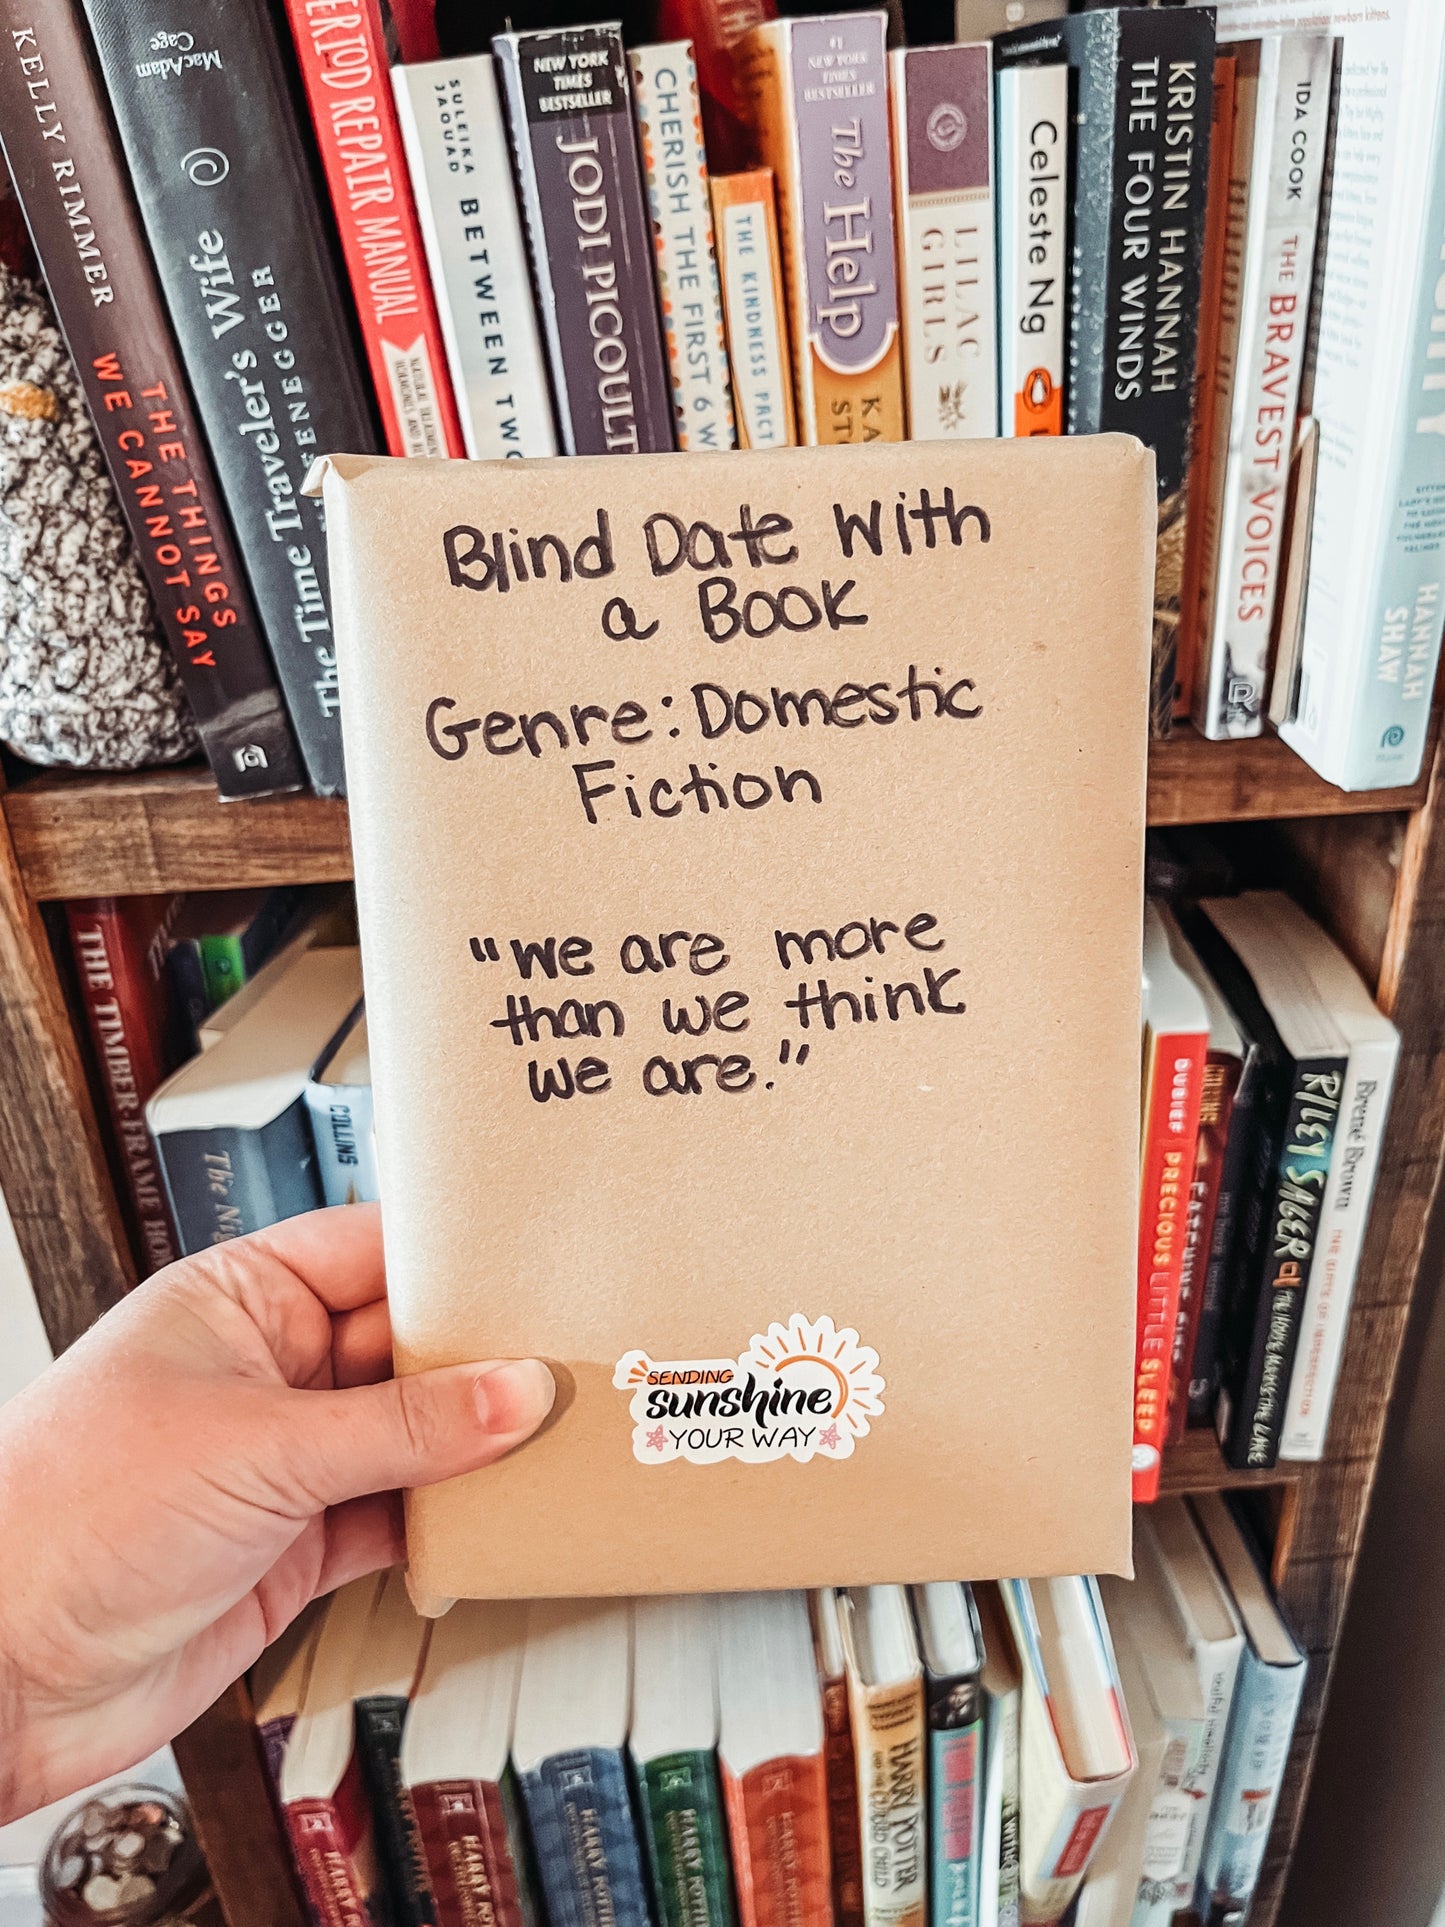 KELLY RIMMER
THE THINGS
WE CANNOT SAY
MacAdam
Cage
The Time Traveler's Wife
PERIOD REPAIR MANUAL
SULEIKA
JAOUAD
BETWEEN TWO
NEW YORK
TIMES
BESTSELLER
JODI PICOULT
CHERISH THE FIRST 6 W
THE KINDNESS PACT
#1
NEW YORK
TIMES
BESTSELLER
The Help
LILAC
GIRLS
Celeste Ng
KRISTIN HANNAH
THE FOUR WINDS
IDA COOK
THE BRAVEST VOICES
HANNAH
SHAW
Blind Date With
a Book
Genre: Domestic
Fiction
"We are more
than we think
we are."
SENDING
sunshine
YOUR WAY
THE TIMBER FRAME HO
The Nig
COLLINS
DUBIEF PRECIOUS LITTLE SLEEP
RILEY SAGER
THE HOUSE ACROSS THE LAKE
Brené Brown
THE GIFTS OF IMPERFECTION
HARRY POTTER
HARRY POTTER
HARRY POTTER
HARRY POTTER
HARRY POTTER
HARRY POTTER